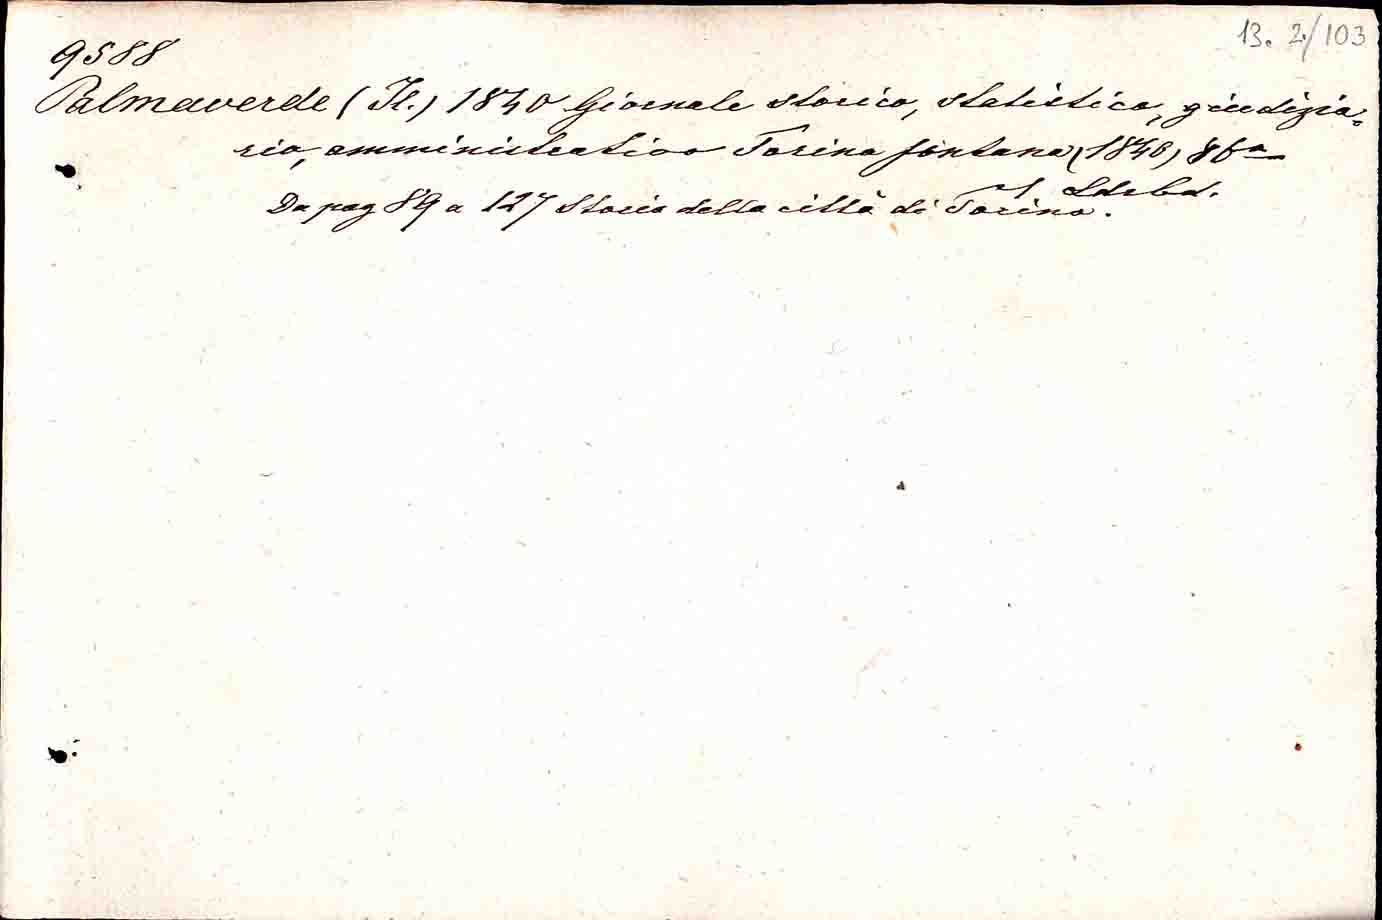 13. 2/103
9588
Palmaverde (Il.) 1840 Giornale storico, statistico, giudizia-
rio, amministrativo Torino fontana (1840)
Da pag 89 a 127 Storia della città di Torino.